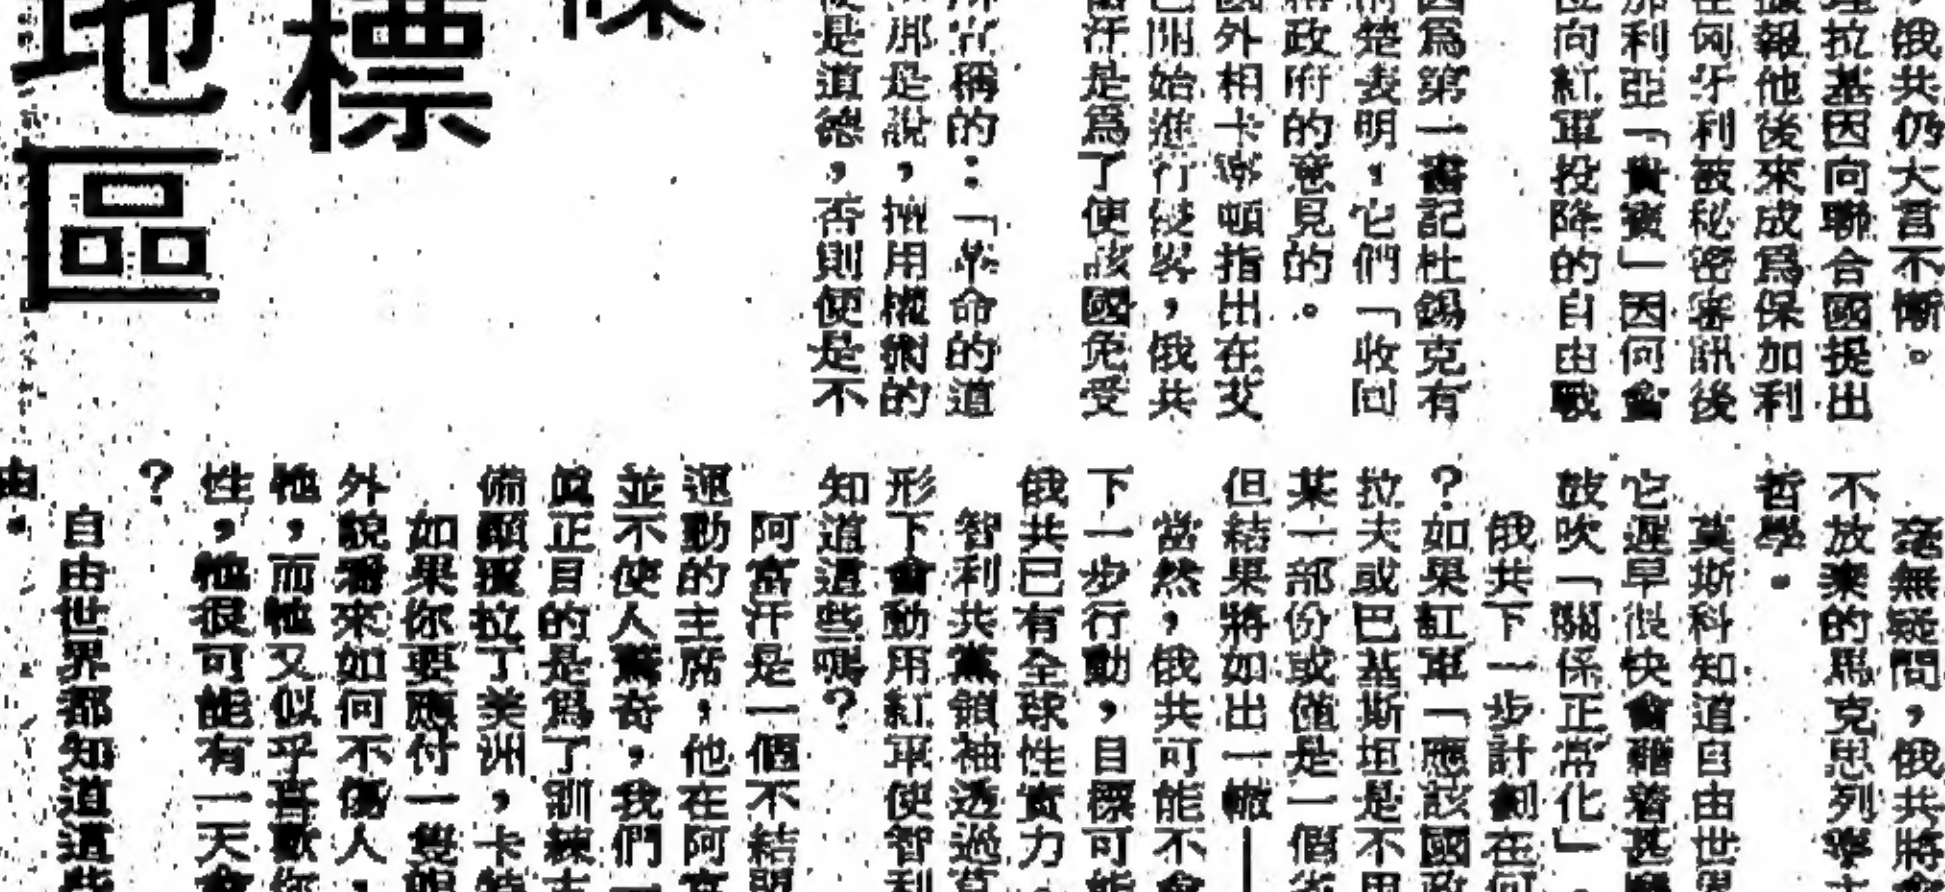 ，俄共仍大言不慚。
理拉基因向聯合國提出
據報他後來成爲保加利
在匈牙利被秘密審訊後
加利亞「貴賓」因何會
位向紅軍投降的自由戰
因爲第一書記杜錫克有
清楚表明，它們「收回
政府的意見的。
國外相卡寧頓指出在艾
已開始進行侵畧，俄共
富汗是爲了使該國免受
宣稱的：「革命的道
那是說，搞用權術的
便是道德，否則便是不
標
地區
毫無疑問，俄共將
不放棄的馬克思列寧主
哲學。
莫斯科知道自由世界
它遲早很快會藉着甚麼
鼓吹「關係正常化」。
俄共下一步計劃在何
？如果紅軍「應該國政
拉夫或巴基斯坦是不用
某一部份或僅是一個省
但結果將如出一轍—
當然，俄共可能不會
下一步行動，目標可能
俄共已有全球性實力。
智利共黨領袖透過莫
形下會動用紅軍使智利
知道這些嗎？
阿富汗是一個不結盟
運動的主席，他在阿富
並不使人驚奇，我們一
眞正目的是爲了訓練古
備顚覆拉丁美洲，卡特
如果你要應付一隻
外貌看來如何不傷人，
牠，而牠又似乎喜歡你
性，牠很可能有一天會
？
自由世界都知道這些
由。